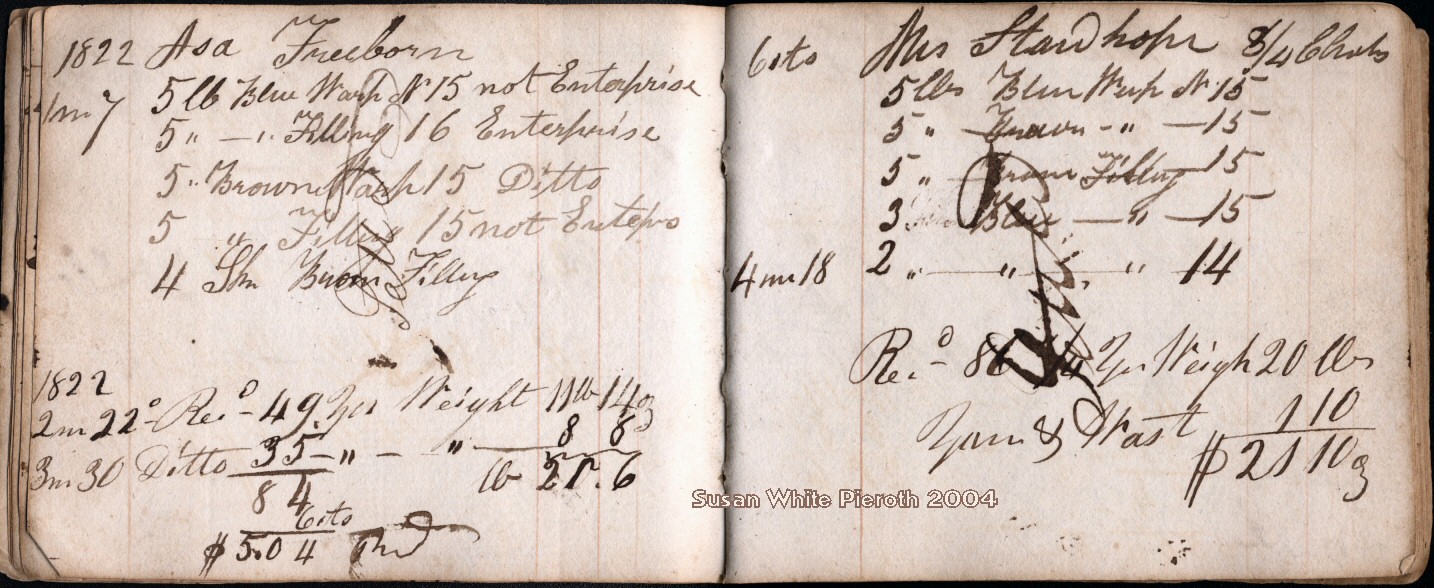 1822 Asa Freeborn
1m 7 5 lb Blue Warp No 15 not Enterprise
5 " — " Filling 16 Enterprise
5 " Brown Warp 15 Ditto
5 " Filling 15 not Enteprs
4 Skn Brown Filling
1822
2m 22d Recd 49 Yds Weight 11 lb 14 oz
3m 30 Ditto 35 — " — " — 8 8
84 lb 21 . 6
6 cts
$5.04 Pd
6 cts Mrs Standhope 3/4 Checks
5 lbs Blue Warp No 15
5 " Brown — " — 15
5 " Brown Filling 15
3 Blue — " — 15
4m 18 2 " — " — " 14
Recd Yds Weigh 20 lbs
Yarn & Wast 1 10
$ 21 10 oz
Susan White Pieroth 2004